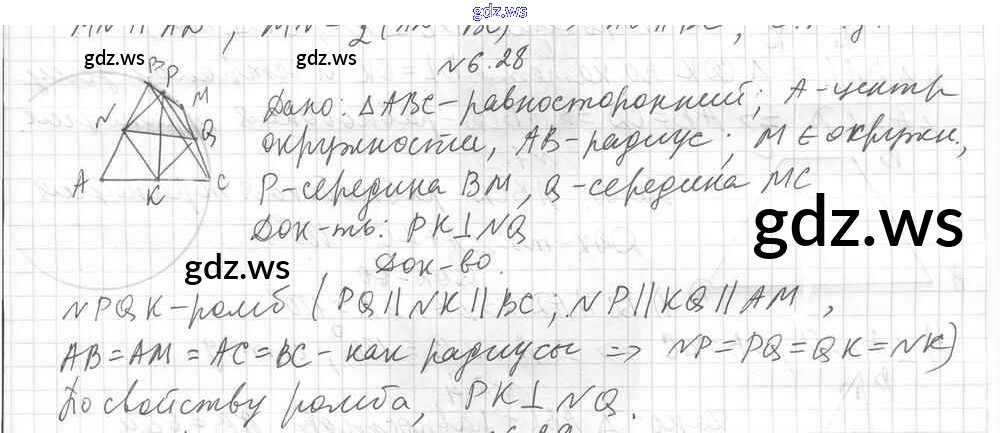 gdz.ws
MN || AD, MN = 1/2 (
gdz.ws gdz.ws
№6.28
B P M N Q A K C
Дано: △ABC-равносторонний; A-центр
окружности, AB-радиус; M ∈ окружн.,
P-середина BM, Q-середина MC
gdz.ws
Док-ть: PK⊥NQ
gdz.ws
Док-во.
NPQK-ромб (PQ || NK || BC; NP || KQ || AM,
AB = AM = AC = BC - как радиусы => NP = PQ = QK = NK)
По свойству ромба, PK⊥NQ.